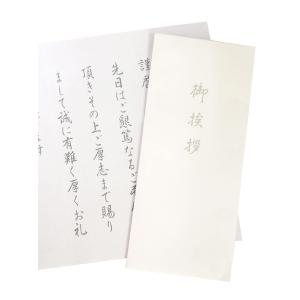 御挨拶
謹啓
先日はご懇篤なるご
頂きその上ご厚志まで賜り
まして誠に有難く厚くお礼